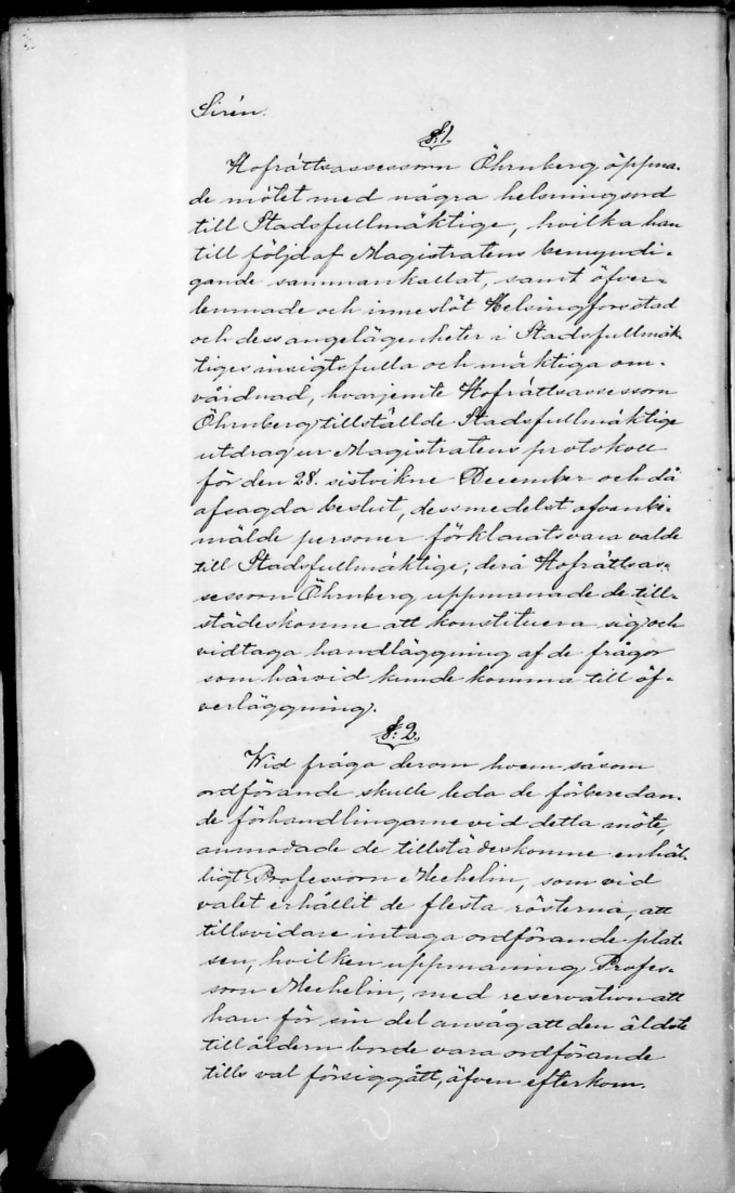 Sirén.
§ 1.
Hofrättsassessorn Öhrnberg öppna-
de mötet med några helsningsord
till Stadsfullmäktige, hvilka han
till följd af Magistratens bemyndi-
gande sammankallat, samt öfver-
lemnade och inneslöt Helsingfors stad
och dess angelägenheter i Stadsfullmäk-
tiges insigtsfulla och mäktiga om-
vårdnad, hvarjemte Hofrättsassessorn
Öhrnberg tillställde Stadsfullmäktige
utdrag ur Magistratens protokoll
för den 28. sistvikne December och då
afsagda beslut, dessmedelst ofvanbe-
mälde personer förklarats vara valde
till Stadsfullmäktige; derå Hofrättsas-
sessorn Öhrnberg uppmanade de till-
städeskomne att konstituera sig och
vidtaga handläggning af de frågor
som härvid kunde komma till öf-
verläggning.
§: 2.
Wid fråga derom hvem såsom
ordförande skulle leda de förberedan-
de förhandlingarne vid detta möte,
anmodade de tillstädeskomne enhäl-
ligt Professorn Mechelin, som vid
valet erhållit de flesta rösterna, att
tillsvidare intaga ordförande plat-
sen, hvilken uppmaning Profes-
sorn Mechelin, med reservation att
han för sin del ansåg att den äldste
till åldern borde vara ordförande
tills val försiggått, äfven efterkom.